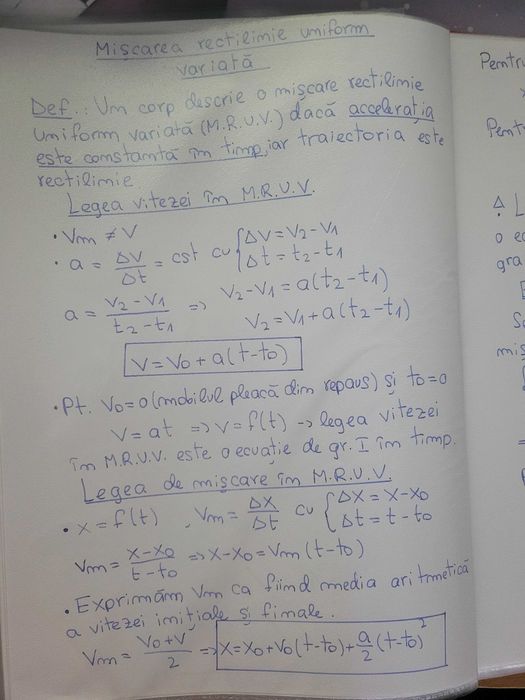 Mișcarea rectilinie uniform
variată
Def.: Un corp descrie o mișcare rectilinie
uniform variată (M.R.U.V.) dacă accelerația
este constantă în timp, iar traiectoria este
rectilinie
Legea vitezei în M.R.U.V.
• Vm ≠ V
• a = ΔV/Δt = cst cu { ΔV = V2 - V1
Δt = t2 - t1
a = (V2 - V1)/(t2 - t1) => V2 - V1 = a(t2 - t1)
V2 = V1 + a(t2 - t1)
V = V0 + a(t - t0)
• Pt. V0 = 0 (mobilul pleacă din repaus) și t0 = 0
V = at => V = f(t) -> legea vitezei
în M.R.U.V. este o ecuație de gr. I în timp.
Legea de mișcare în M.R.U.V.
• x = f(t), Vm = Δx/Δt cu { Δx = x - x0
Δt = t - t0
Vm = (x - x0)/(t - t0) => x - x0 = Vm(t - t0)
• Exprimăm Vm ca fiind media aritmetică
a vitezei inițiale și finale.
Vm = (V0 + V)/2 => x = x0 + V0(t - t0) + a/2 (t - t0)²
Pentru
Pent
! L
o ec
gra
mis